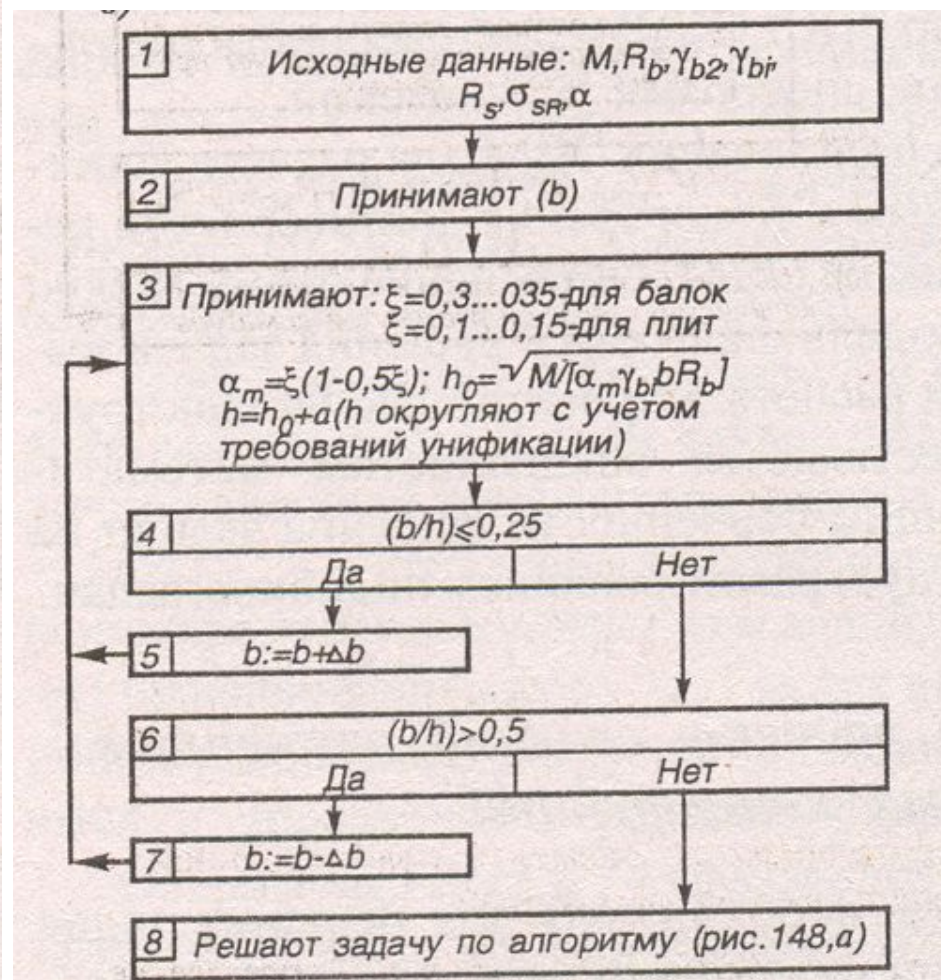 1 Исходные данные: M, R_b, γ_b2, γ_bi,
R_s, σ_SR, α
2 Принимают (b)
3 Принимают: ξ=0,3...035-для балок
ξ=0,1...0,15-для плит
α_m=ξ(1-0,5ξ); h_0=√M/[α_mγ_bibR_b]
h=h_0+a(h округляют с учетом
требований унификации)
4 (b/h)⩽0,25
Да Нет
5 b:=b+Δb
6 (b/h)>0,5
Да Нет
7 b:=b-Δb
8 Решают задачу по алгоритму (рис.148,а)